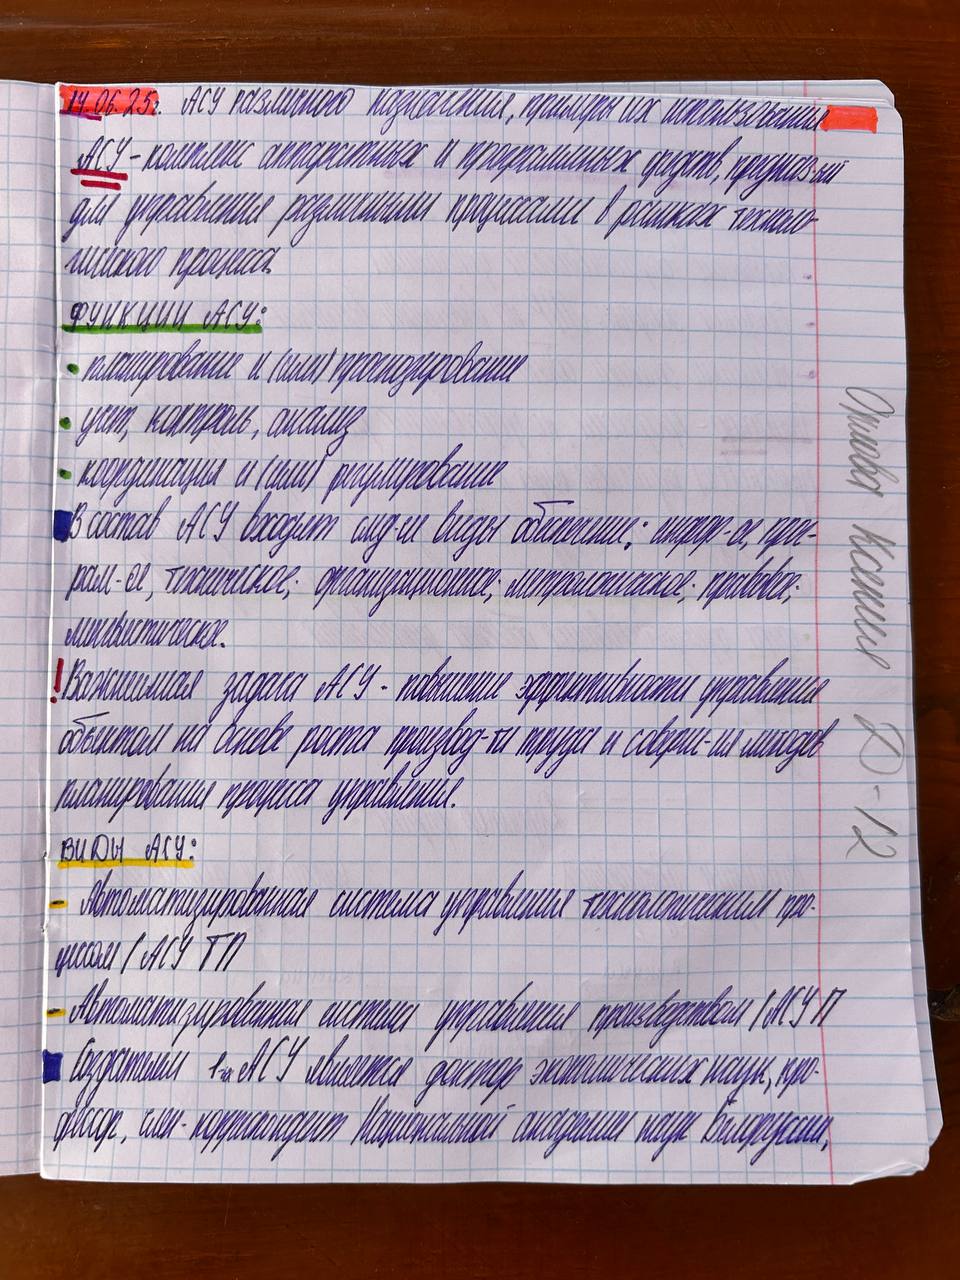 14.06.25г. АСУ различного назначения, примеры их использования
АСУ - комплекс аппаратных и программных средств, предназ-ый
для управления различными процессами в рамках техноло-
гического процесса.
ФУНКЦИИ АСУ:
• планирование и (или) прогнозирование
• учёт, контроль, анализ
• координация и (или) регулирование
В состав АСУ входит след-ие виды обеспечение: инфор-ое, прог-
рам-ое, техническое; организационное; метрологическое; правовое;
лингвистическое.
! Важнейшая задача АСУ - повышение эффективности управления
объектом на основе роста производ-ти труда и соверш-ия методов
планирования процесса управления.
ВИДЫ АСУ:
- Автоматизированная система управления технологическим про-
цессом / АСУ ТП
- Автоматизированная система управления производством / АСУ П
Создателем 1-й АСУ является доктор экономических наук, про-
фессор, член-корреспондент Национальной академии наук Белоруссии,
Ксения Д-12